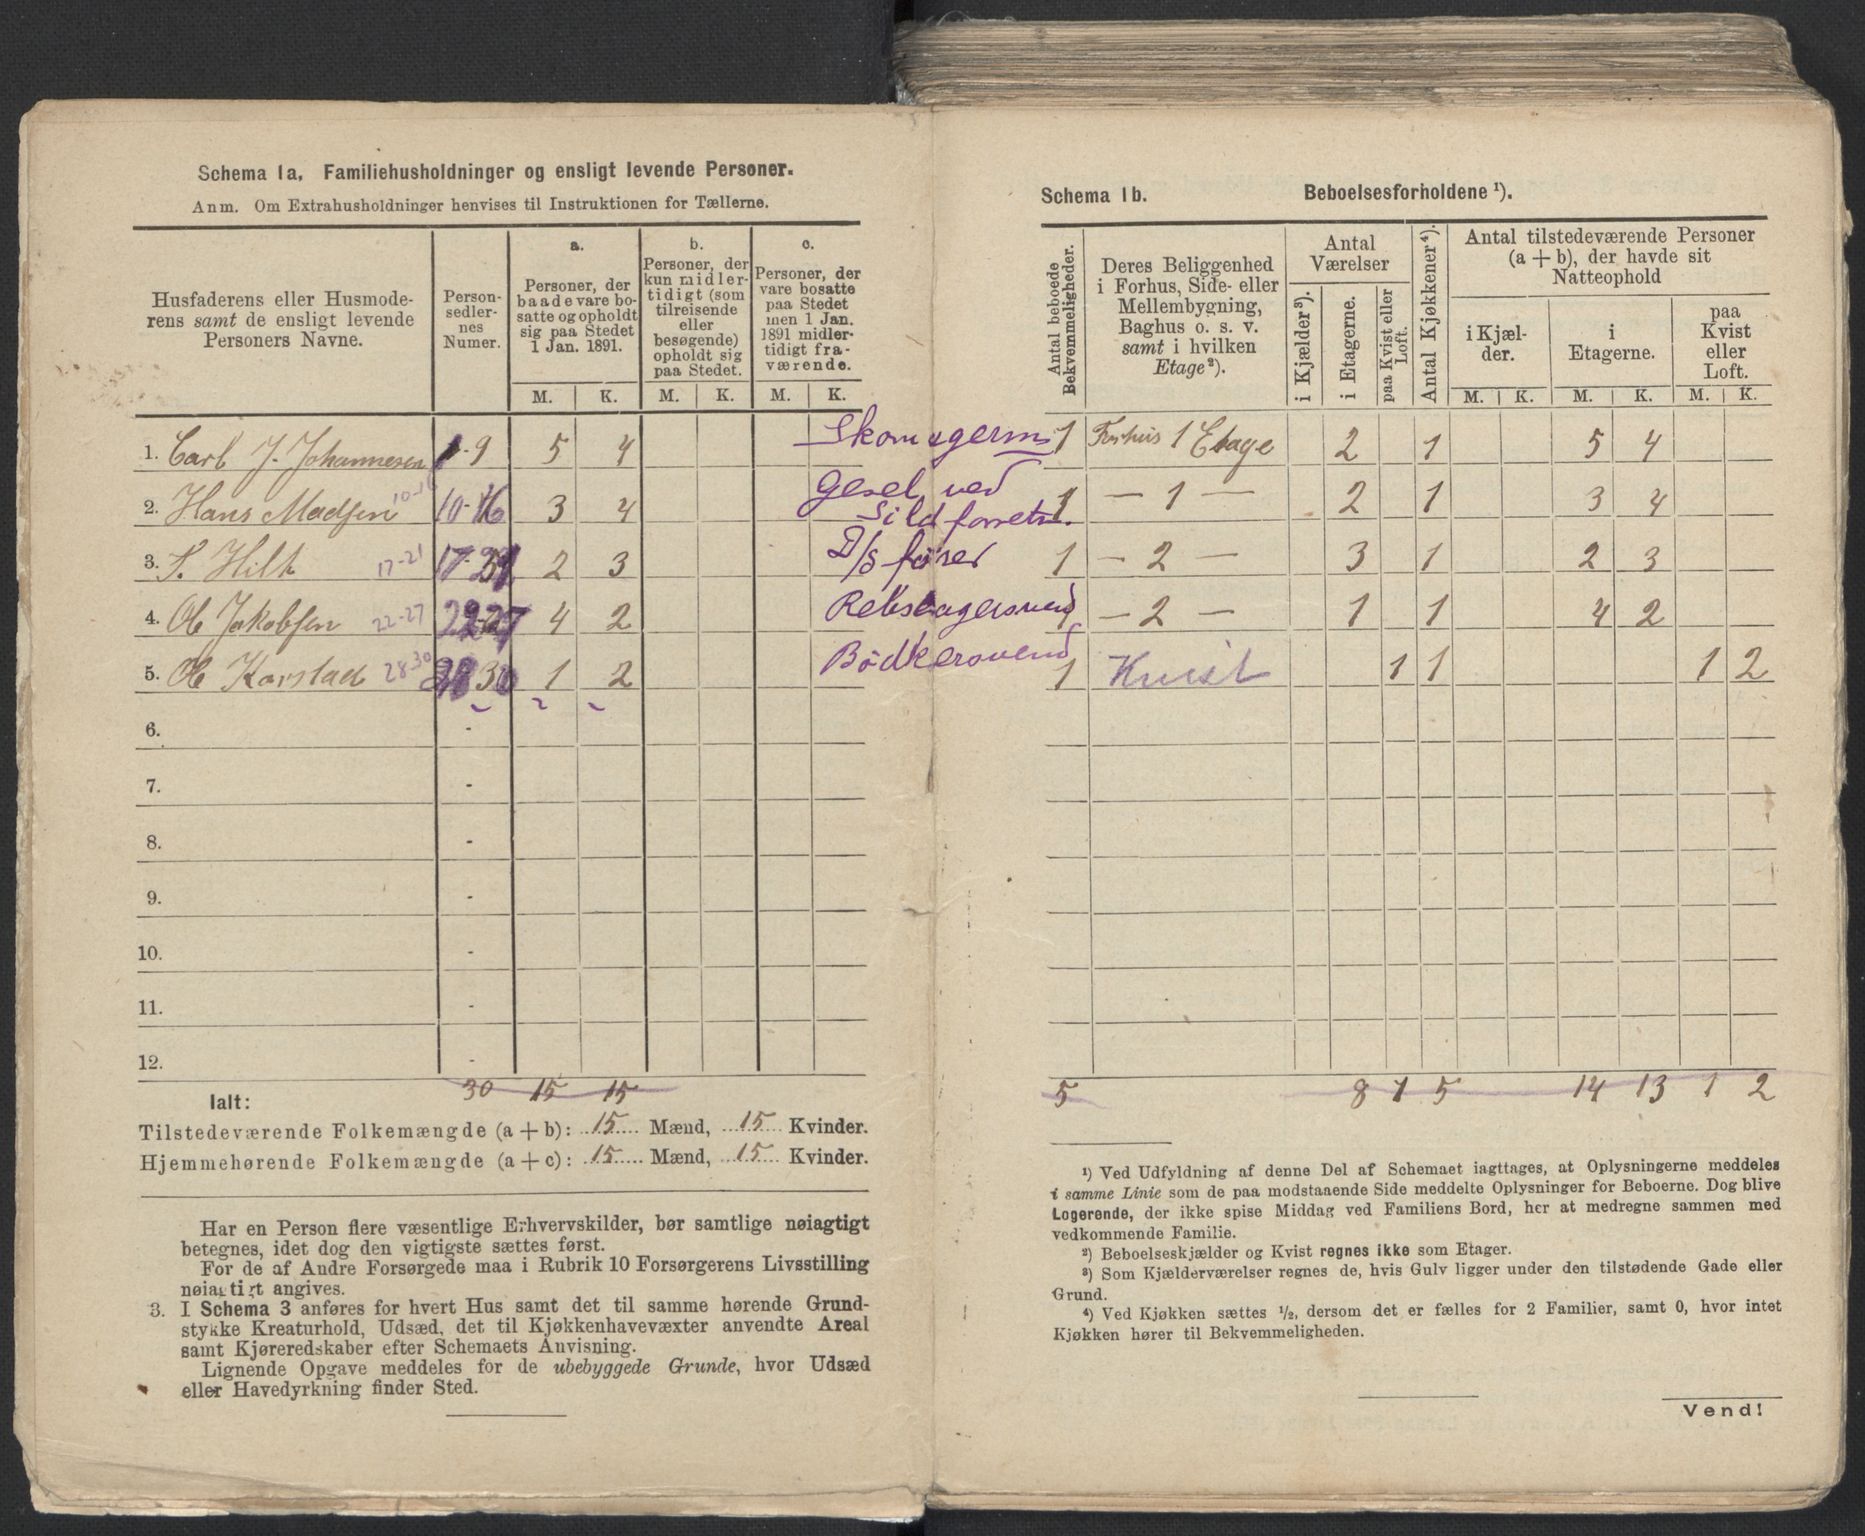 Schema 1a. Familiehusholdninger og ensligt levende Personer.
Anm. Om Extrahusholdninger henvises til Instruktionen for Tællerne.
Husfaderens eller Husmode-
rens samt de ensligt levende
Personers Navne.
Person-
sedler-
nes
Numer.
a.
Personer, der
baade vare bo-
satte og opholdt
sig paa Stedet
1 Jan. 1891.
b.
Personer, der
kun midler-
tidigt (som
tilreisende
eller
besøgende)
opholdt sig
paa Stedet.
c.
Personer, der
vare bosatte
paa Stedet
men 1 Jan.
1891 midler-
tidigt fra-
værende.
M. K. M. K. M. K.
1. Carl J. Johannesen 1-9 5 4 Skomagerm
2. Hans Madsen 10-16 10-16 3 4 Gesel ved
Sildforretn.
3. S. Hilt 17-21 17-21 2 3 D/s fører
4. Ole Jakobsen 22-27 22-27 4 2 Rebslagersvend
5. Ole Karstad 28-30 28-30 1 2 Bødkersvend
6. -
7. -
8. -
9. -
10. -
11. -
12. -
30 15 15
Ialt:
Tilstedeværende Folkemængde (a + b): 15 Mænd, 15 Kvinder.
Hjemmehørende Folkemængde (a + c): 15 Mænd, 15 Kvinder.
Har en Person flere væsentlige Erhvervskilder, bør samtlige nøiagtigt
betegnes, idet dog den vigtigste sættes først.
For de af Andre Forsørgede maa i Rubrik 10 Forsørgerens Livsstilling
nøiagtigt angives.
3. I Schema 3 anføres for hvert Hus samt det til samme hørende Grund-
stykke Kreaturhold, Udsæd, det til Kjøkkenhavevæxter anvendte Areal
samt Kjøreredskaber efter Schemaets Anvisning.
Lignende Opgave meddeles for de ubebyggede Grunde, hvor Udsæd
eller Havedyrkning finder Sted.
Schema 1b. Beboelsesforholdene ¹).
Antal beboede
Bekvemmeligheder.
Deres Beliggenhed
i Forhus, Side- eller
Mellembygning,
Baghus o. s. v.
samt i hvilken
Etage²).
Antal
Værelser
i Kjælder³).
i Etagerne.
paa Kvist eller
Loft.
Antal Kjøkkener⁴).
Antal tilstedeværende Personer
(a + b), der havde sit
Natteophold
i Kjæl-
der.
i
Etagerne.
paa
Kvist
eller
Loft.
M. K. M. K. M. K.
1 Forhus 1 Etage 2 1 5 4
1 — 1 — 2 1 3 4
1 — 2 — 3 1 2 3
1 — 2 — 1 1 4 2
1 Kvist 1 1 1 2
5 8 1 5 14 13 1 2
¹) Ved Udfyldning af denne Del af Schemaet iagttages, at Oplysningerne meddeles
i samme Linie som de paa modstaaende Side meddelte Oplysninger for Beboerne. Dog blive
Logerende, der ikke spise Middag ved Familiens Bord, her at medregne sammen med
vedkommende Familie.
²) Beboelseskjælder og Kvist regnes ikke som Etager.
³) Som Kjælderværelser regnes de, hvis Gulv ligger under den tilstødende Gade eller
Grund.
⁴) Ved Kjøkken sættes ½, dersom det er fælles for 2 Familier, samt 0, hvor intet
Kjøkken hører til Bekvemmeligheden.
Vend!